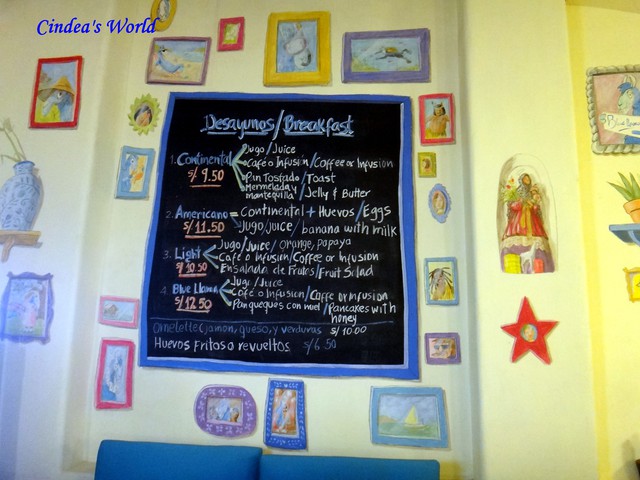 Cindea's World
Desayunos/Breakfast
1. Continental
S/ 9.50
Jugo/Juice
Café o Infusión/Coffee or Infusion
Pan Tostado/Toast
Mermelada y
mantequilla/Jelly & Butter
2. Americano = Continental + Huevos/Eggs
S/ 11.50
Jugo/Juice/banana with milk
3. Light
S/ 10.50
Jugo/Juice/orange, papaya
Café o Infusión/Coffee or Infusion
Ensalada de Frutas/Fruit Salad
4. Blue Llama
S/ 12.50
Jugo/Juice
Café o Infusión/Coffe or Infusion
Panqueques con miel/Pancakes with
honey
Omelette (jamon, queso, y verduras S/ 10.00
Huevos Fritos o revueltos S/ 6.50